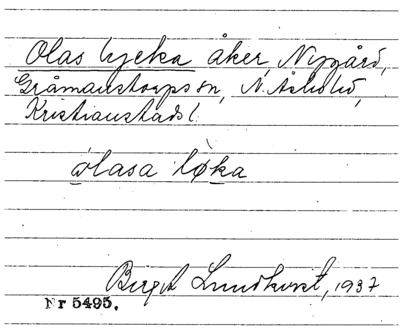 Olas lycka åker, Nygård,
Gråmanstorps sn, N. Åsbo hd,
Kristianstads l.
ωlasa løka
Birgit Lundkvist, 1937
Nr 5495.